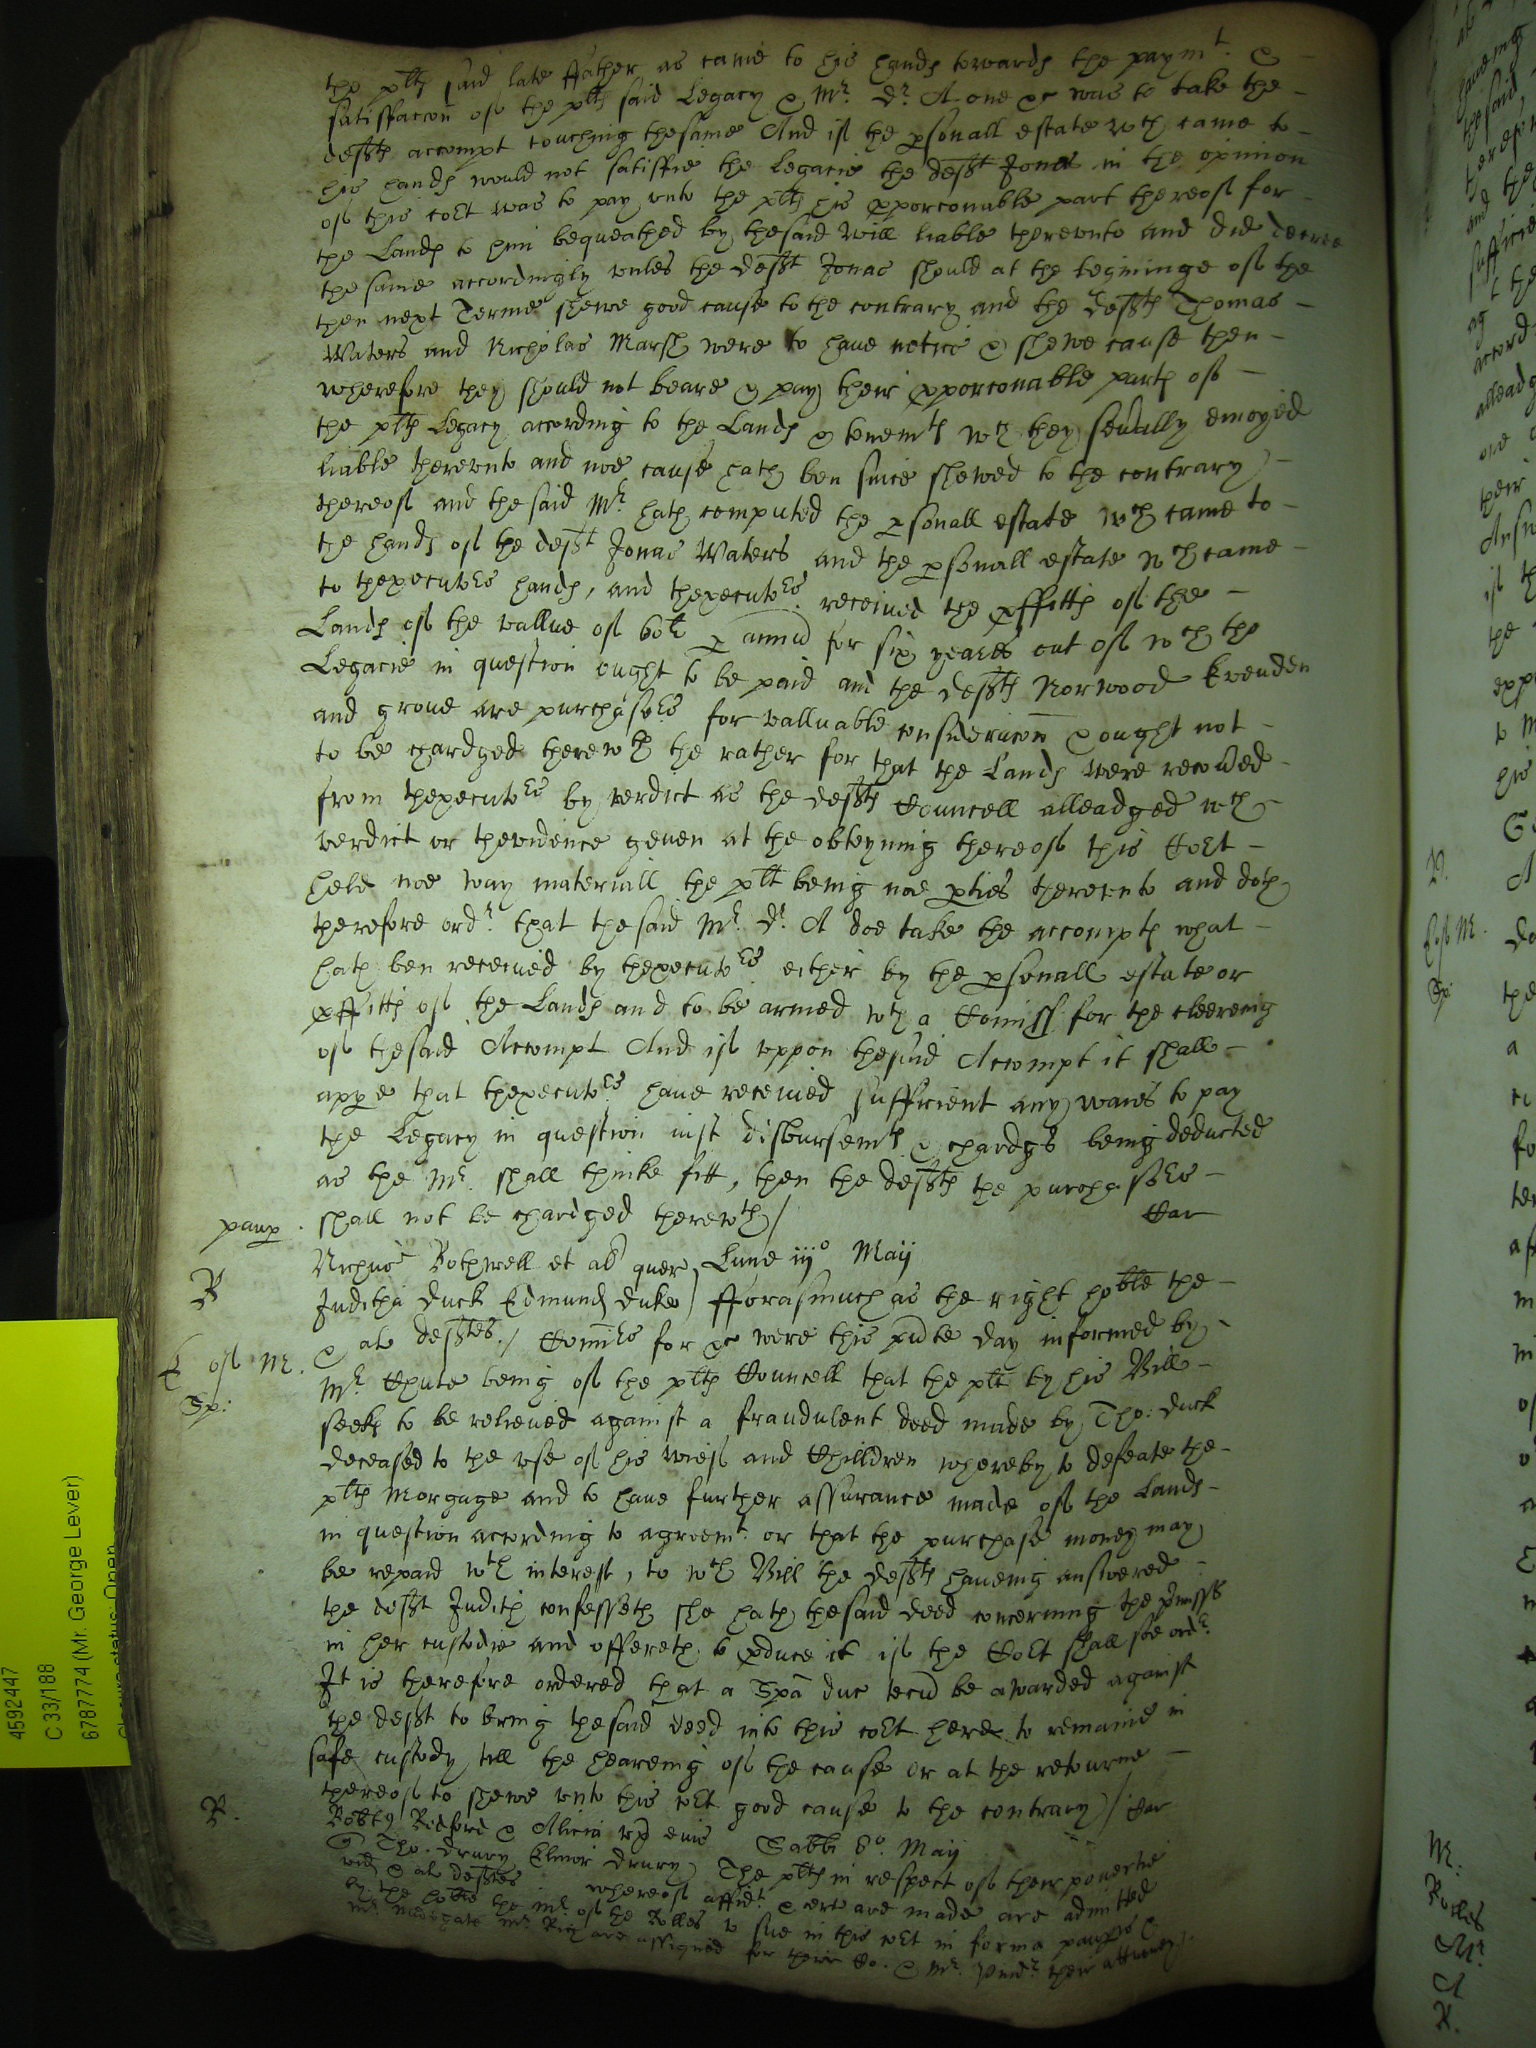 the plts said late ffather as came to his hands towards the paymt &
satisfaccon of the plts said Legacy & Mr Dr A one &c was to take the
defts accompt touching thesame And if the psonall estate wch came to
his hands would not satisfie the Legacie the deft Jonas in the opinion
of this cort was to pay unto the plts his pporconable part thereof for
the Lands to him bequeathed by thesaid will liable thereunto and did decree
thesame accordingly unles the deft Jonas should at the begininge of the
then next Terme shewe good cause to the contrary and the defts Thomas
Waters and Nicholas Marsh were to have notice & shewe cause then
wherefore they should not beare & pay their pporconable parts of
the plts Legacy according to the Lands & tenemts wch they sevally enioyed
liable thereunto and noe cause hath ben since shewed to the contrary
thereof and thesaid Mr hath computed the psonall estate wch came to
the hands of the deft Jonas Waters and the psonall estate wch came
to thexecutors hands, and thexecutors received the pffitts of the
Lands of the vallue of 60li p annu for six yeares out of wch the
Legacie in question ought to be paid and the defts Norwood Evenden
and grove are purchasers for valluable consideracon & ought not
to be chardged therewth the rather for that the Lands were recoved
from thexecutors by verdict as the defts Councell alleadged wch
verdict or thevidence geven at the obteyning thereof this Cort
held noe way materiall the plt being noe pties thereunto and doth
therefore ordr that thesaid Mr Dr A doe take the accompts what
hath ben received by thexecutors either by the psonall estate or
pffitts of the Lands and to be armed wth a Comiss for the cleereing
of thesaid Accompt And if uppon thesaid Accompt it shall
appe that thexecutors have received sufficient any waies to pay
the Legacy in question iust disbursemts & chardgs being deducted
as the Mr shall thinke fitt, then the defts the purchasers
shall not be chardged therewth / Car
paup
Nichus Bothwell et al quer Lune iijo Maij
R
Juditha Duck Edmund Duke ) fforasmuch as the right hoble the
& al deftes / Comrs for &c were this pnte day informed by
E of Mr.
Mr Chute being of the plts Councell that the plt by his Bill
Sp:
seeks to be relieved against a fraudulent deed made by Tho: Duck
deceased to the use of his wief and Chilldren whereby to defeate the
plts Morgage and to have further assurance made of the Lands
in question according to agreemt or that the purchase money may
be repaid wth interest, to wch Bill the defts haveing answered
the deft Judith confesseth she hath thesaid deed concerning the pmisss
in her custodie and offereth to pduce it if the Cort shall soe ordr
It is therefore ordered that a Spa duc tecu be awarded against
the deft to bring thesaid deed into this cort here to remaine in
safe custody till the heareing of the cause or at the retourne
thereof to shewe unto this cort good cause to the contrary / Car
R.
Robts Redford & Alicia ux eius Sabbi 8o Maij
q Tho. Drury Elinor Drury ) The plts in respect of their povertie
vid & al deftes whereof affidt & cert are made are admitted
by the hoble the Mr of the Rolles to sue in this cort in forma paupis &
Mr Mr Rich are assigned for their Co. & Mr their attorney
4592447
C 33/188
6787774 (Mr. George Lever)
Closure status: Open